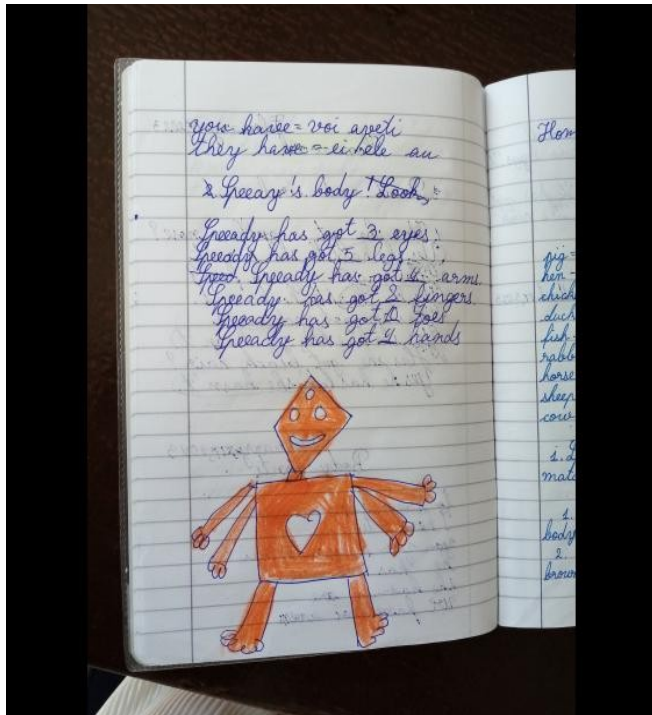 you have = voi aveti
they have = ei/ele au
2. Speedy's body! Look
Speedy has got 3 eyes.
Speedy has got 5 legs.
Speedy has got 4 arms.
Speedy has got 2 fingers
Speedy has got 0 toes
Speedy has got 4 hands
Hom
pig =
hen -
chick
duck
fish -
rabb
horse
sheep
cow
1. L
mat
1.
body
2.
brown